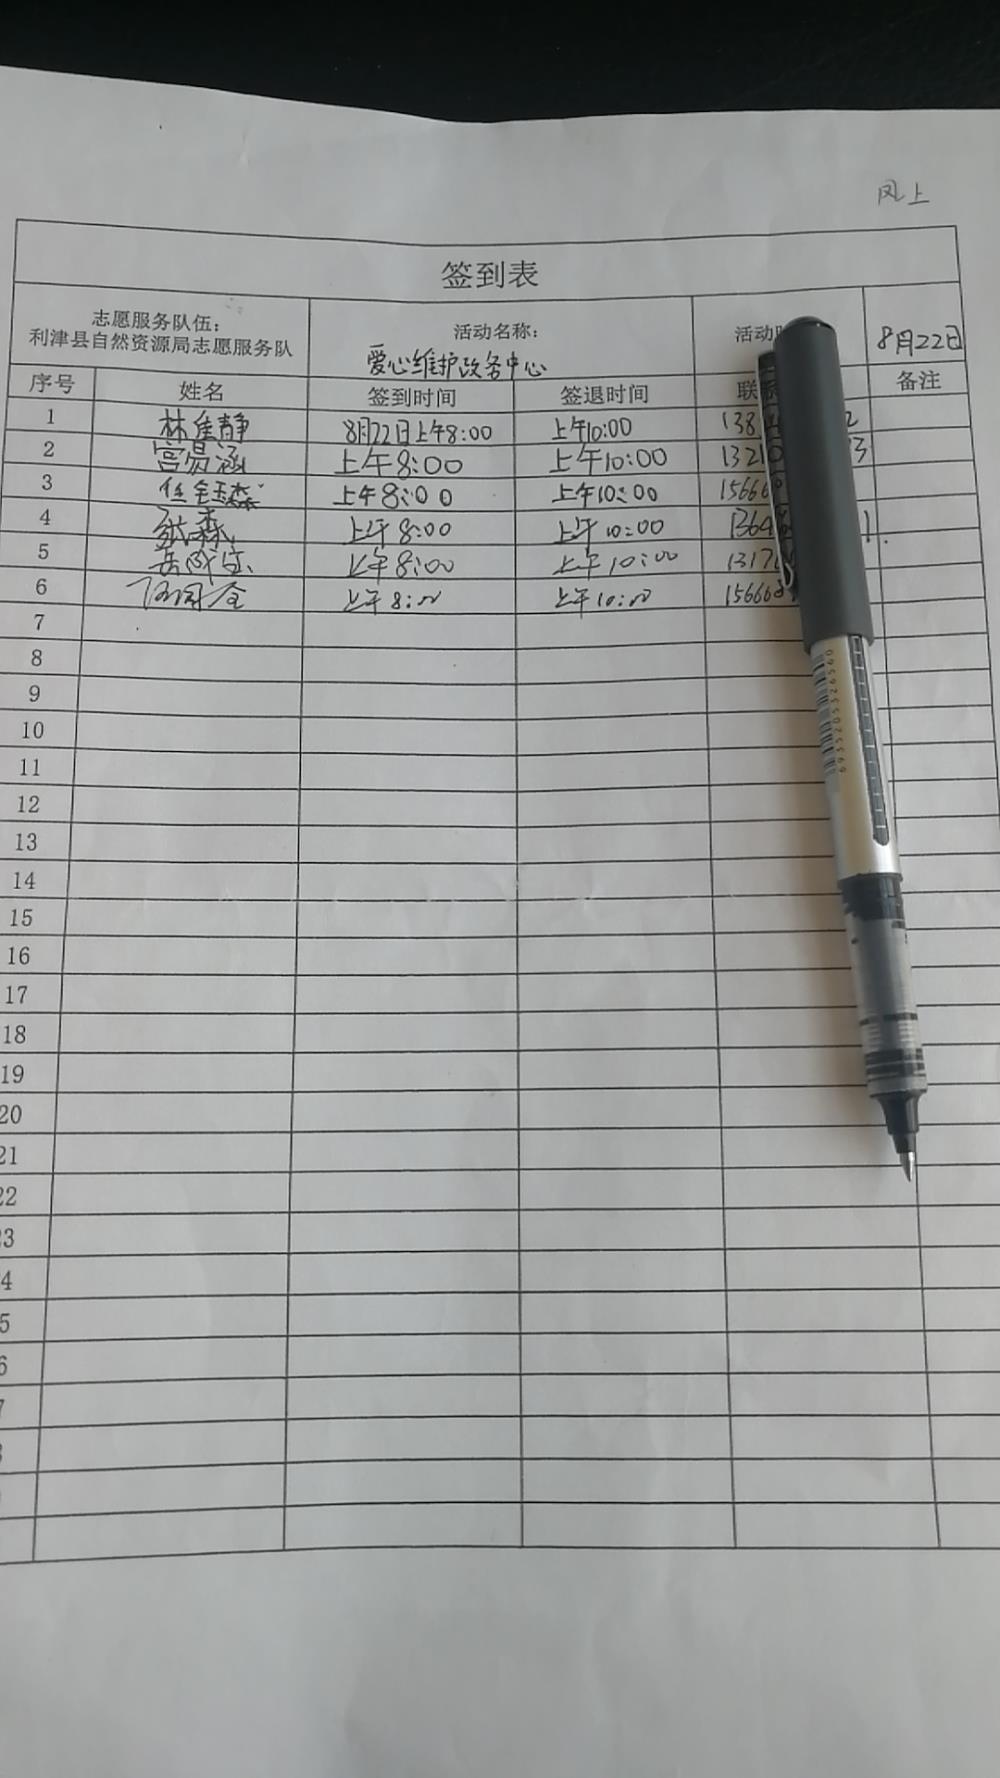 风上
签到表
志愿服务队伍：
利津县自然资源局志愿服务队
活动名称：
爱心维护政务中心
活动
8月22日
序号 姓名 签到时间 签退时间 联 备注
1 林佳静 8月22日上午8:00 上午10:00 138 2
2 宫易涵 上午8:00 上午10:00 13210 3
3 上午8:00 上午10:00 15666
4 张森 上午8:00 上午10:00 1364 1
5 上午8:00 上午10:00 1317
6 上午8:00 上午10:00 15666
7
8
9
10
11
12
13
14
15
16
17
18
19
20
21
22
23
4
5
6
7
6935205326560